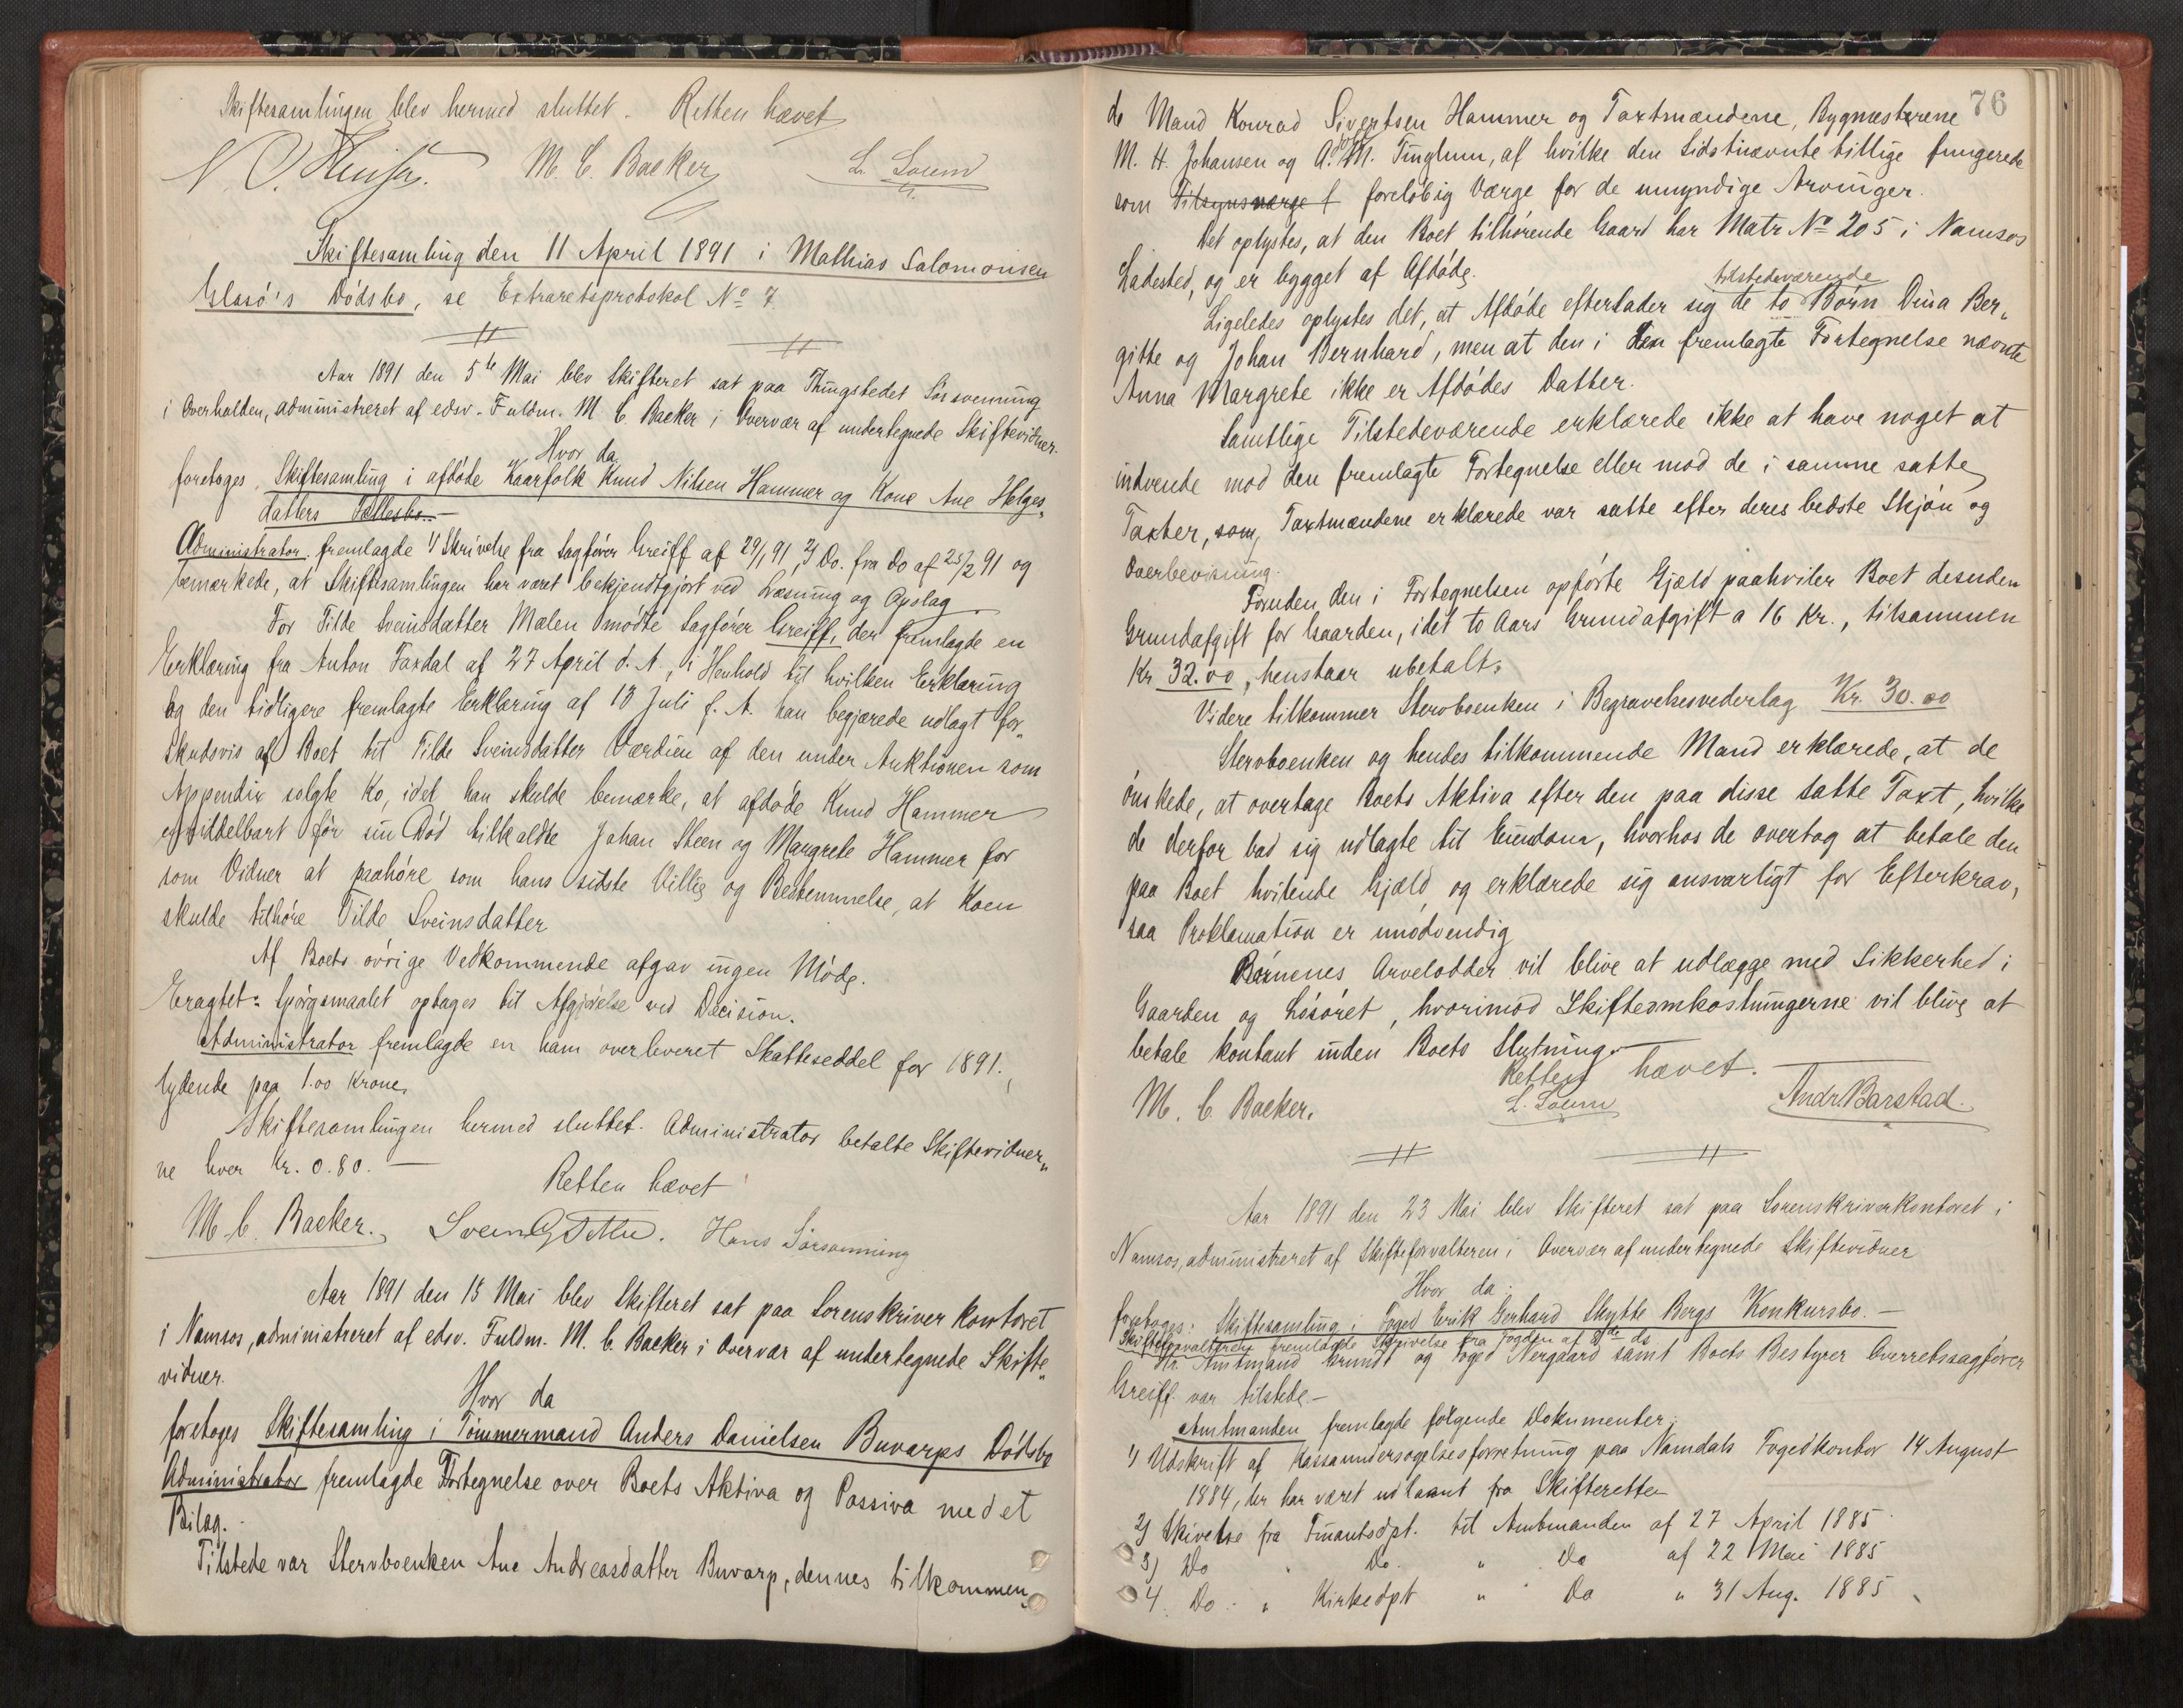 Skiftesamlingen blev hermed sluttet. Retten hævet
M. C. Backer L. Soem
Skiftesamling den 11 April 1891 i Mathias Salomonsen
Glasö's Dödsbo, se Extraretsprotokol No 7.
Aar 1891 den 5te Mai blev Skifteret sat paa Thingstedet Sörsvenning
i Overhalden, administreret af edsv. Fuldm. M. C. Backer i Overvær af undertegnede Skiftevidner.
Hvor da
foretoges Skiftesamling i afdöde Kaarfolk Knud Nilsen Hammer og Kone Ane Helges„
datters Fællesbo.—
Administrator fremlagde 1) Skrivelse fra Sagförer Greiff af 29/1 91, 2) Do. fra Do af 25/2 91 og
bemærkede, at Skiftesamlingen har været bekjendtgjort ved Læsning og Opslag.
For Tilde Sveinsdatter Mælen mödte Sagförer Greiff, der fremlagde en
Erklæring fra Anton Faxdal af 27 April d. A., i Henhold til hvilken Erklæring
og den tidligere fremlagte Erklæring af 13 Juli f. A. han begjærede udlagt for„
skudsvis af Boet til Tilde Sveinsdatter Værdien af den under Auktionen som
Appendix solgte Ko, idet han skulde bemærke, at afdöde Knud Hammer
umiddelbart för sin Död tilkaldte Johan Steen og Margrete Hammer for
som Vidner at paahöre som hans sidste Villie og Bestemmelse, at Koen
skulde tilhöre Tilde Sveinsdatter
Af Boets övrige Vedkommende afgav ingen Möde.
Eragtet: Spörgsmaalet optages til Afgjörelse ved Decision.
Administrator fremlagde en ham overleveret Skatteseddel for 1891.,
lydende paa 1.00 Krone,
Skiftesamlingen hermed sluttet. Administrator betalte Skiftevidner„
ne hver Kr. 0.80.—
Retten hævet
M. C. Backer. Hans Sörsvenning
Aar 1891 den 15 Mai blev Skifteret sat paa Sorenskriver kontoret
i Namsos, administreret af edsv. Fuldm. M. C. Backer i Overvær af undertegnede Skifte„
vidner.
Hvor da
foretoges Skiftesamling i Tömmermand Anders Danielsen Buvarps Dödsbo
Administrator fremlagde Fortegnelse over Boets Aktiva og Passiva med et
Bilag.
Tilstede var Stervboenken Ane Andreasdatter Buvarp, dennes tilkommen„
76
de Mand Konrad Sivertsen Hammer og Taxtmændene, Bygmesterene
M. H. Johansen og A. M. Tinglum, af hvilke den Sidstnævnte tillige fungerede
som Tilsynsværge f forelöbig Værge for de umyndige Arvinger.
Det oplystes, at den Boet tilhörende Gaard har Matr No 205 i Namsos
Ladested, og er bygget af Afdöde.
tilstedeværende
Ligeledes oplystes det, at Afdöde efterlader sig de to Börn Dina Ber„
gitte og Johan Bernhard, men at den i den fremlagte Fortegnelse nævnte
Anna Margrete ikke er Afdödes Datter.
Samtlige Tilstedeværende erklærede ikke at have noget at
indvende mod den fremlagte Fortegnelse eller mod de i samme satte
Taxter, som Taxtmændene erklærede var satte efter deres bedste Skjön og
Overbevisning.
Foruden den i Fortegnelsen opförte Gjæld paahviler Boet desuden
Grundafgift for Gaarden, idet to Aars Grundafgift a 16 Kr., tilsammen
Kr 32.00, henstaar ubetalt.
Videre tilkommer Stervboenken i Begravelsesvederlag Kr. 30.00
Stervboenken og hendes tilkommende Mand erklærede, at de
önskede, at overtage Boets Aktiva efter den paa disse satte Taxt, hvilke
de derfor bad sig udlagte til Eiendom, hvorhos de overtog at betale den
paa Boet hvilende Gjæld og erklærede sig ansvarligt for Efterkrav,
saa Proklamation er unödvendig
Börnenes Arvelodder vil blive at udlægge med Sikkerhed i
Gaarden og Lösöret, hvorimod Skifteomkostningerne vil blive at
betale kontant inden Boets Slutning.
Retten hævet.
M. C. Backer. L. Soem Andr. Barstad.
Aar 1891 den 23 Mai blev Skifteret sat paa Sorenskriverkontoret i
Namsos, administreret af Skifteforvalteren i Overvær af undertegnede Skiftevidner
Hvor da
foretoges: Skiftesamling i Foged Erik Gerhard Skytte Bergs Konkursbo.—
Skifteforvalteren fremlagde Skrivelse fra Fogden af 8de ds
Hr. Amtmand Grundt og Foged Nergaard samt Boets Bestyrer Overretssagförer
Greiff var tilstede.—
Amtmanden fremlagde fölgende Dokumenter:
1) Udskrift af Kassaundersögelsesforretning paa Namdals Fogedkontor 14 August
1884, der har været udlaant fra Skifteretten
2) Skivelse fra Finantsdpt. til Amtmanden af 27 April 1885
3) Do „ Do. „ Do af 22 Mai 1885
4. Do „ Kirkedpt „ Do „ 31 Aug. 1885